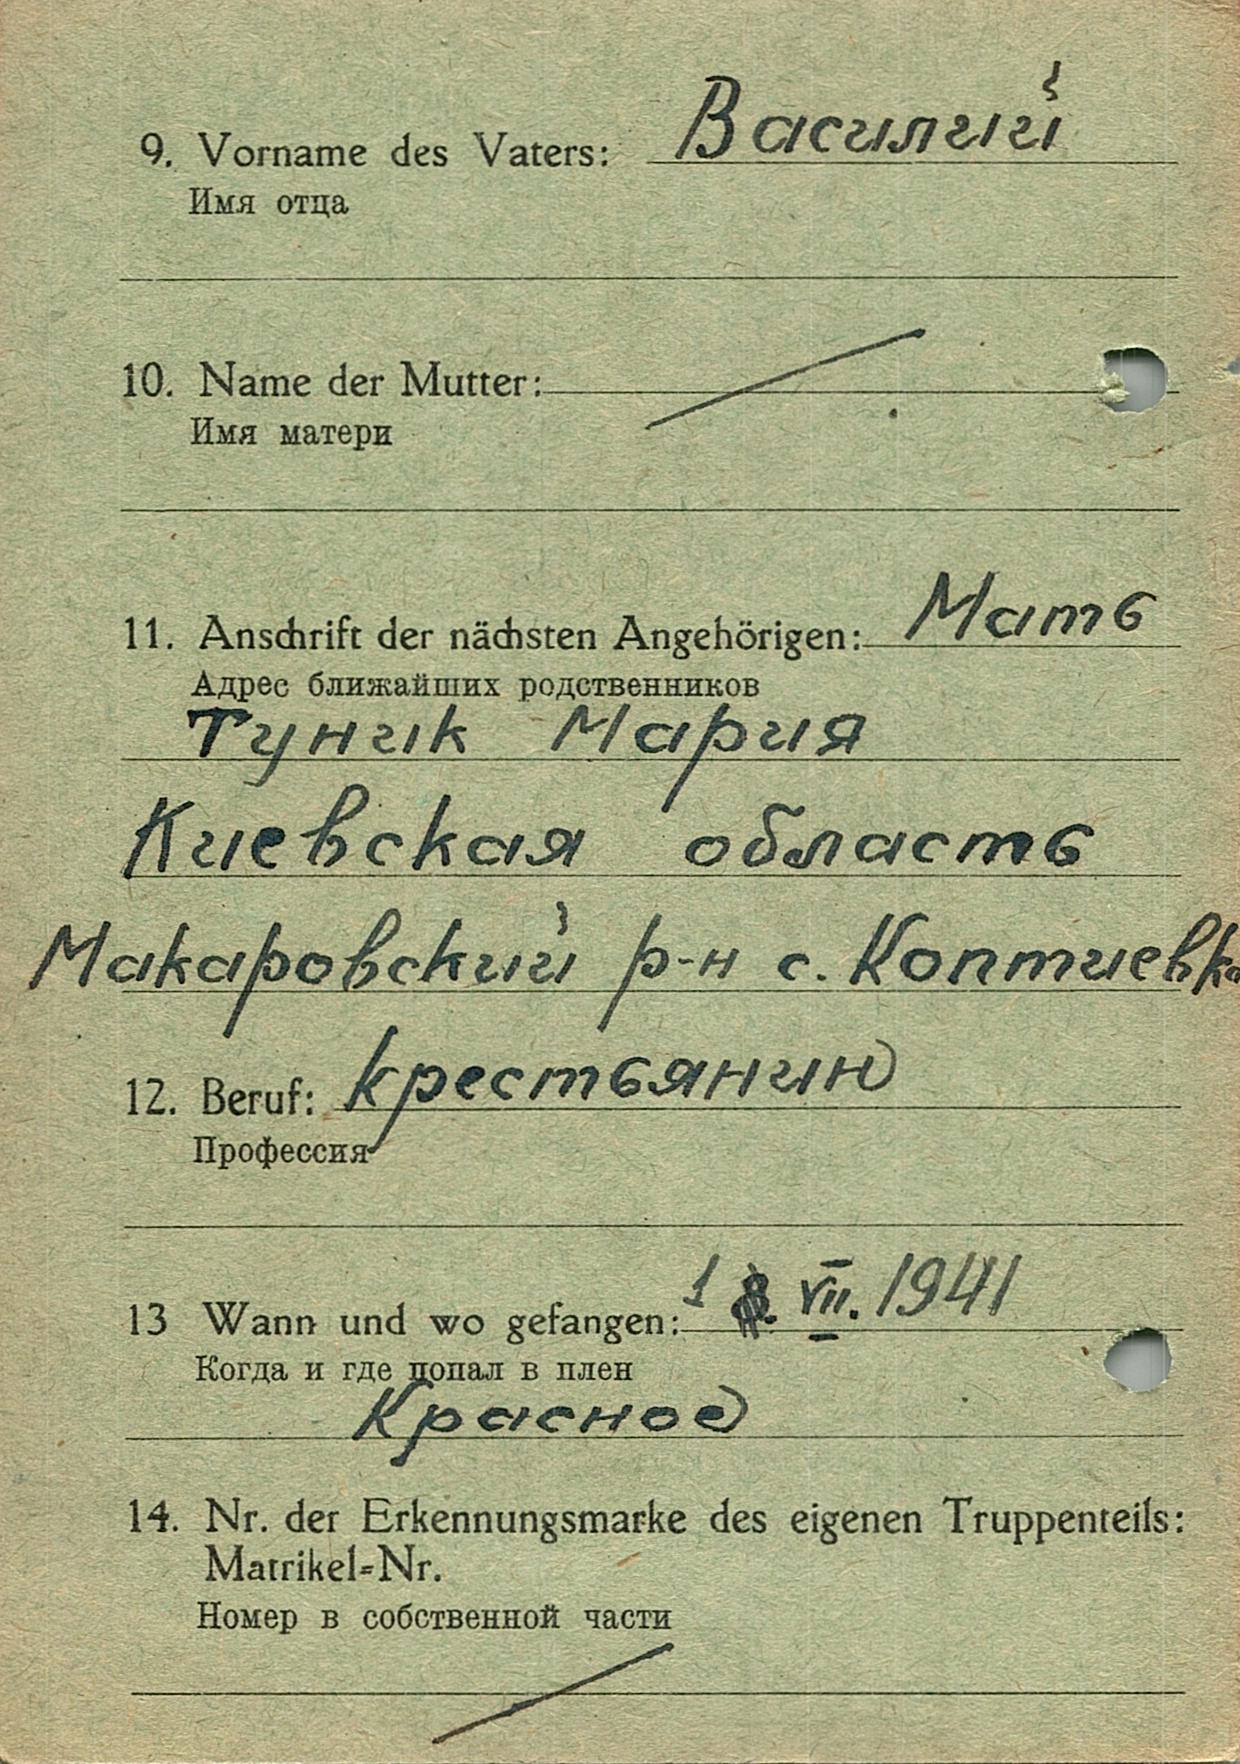 9. Vorname des Vaters: Василий
Имя отца
10. Name der Mutter:
Имя матери
11. Anschrift der nächsten Angehörigen: Мать
Адрес ближайших родственников
Туник Мария
Киевская область
Макаровский р-н с. Коптиевка
12. Beruf: крестьянин
Профессия
13 Wann und wo gefangen: 1 VII. 1941
Когда и где попал в плен
Красное
14. Nr. der Erkennungsmarke des eigenen Truppenteils:
Matrikel-Nr.
Номер в собственной части